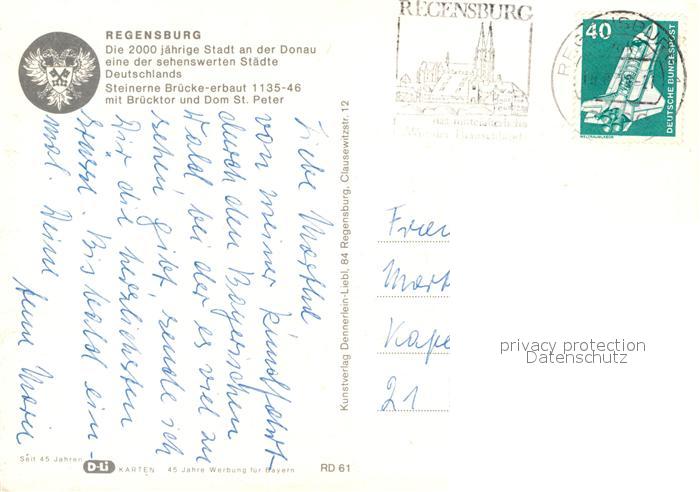 REGENSBURG
Die 2000 jährige Stadt an der Donau
eine der sehenswerten Städte
Deutschlands
Steinerne Brücke-erbaut 1135-46
mit Brücktor und Dom St. Peter
REGENSBURG
das mittelalterliche
Wunder Deutschlands
40
DEUTSCHE BUNDESPOST
WELTRAUMLABOR
Liebe Martha
von meiner Rundfahrt
durch den Bayerischen
Wald bei der es viel zu
sehen gibt sende ich
Dir die herzlichsten
Grüsse. Bis bald ein-
mal. Deine
Anna Maria
Kunstverlag Dennerlein-Liebl, 84 Regensburg, Clausewitzstr. 12
Frau
Mart
Kape
21
privacy protection
Datenschutz
Seit 45 Jahren
D-Li KARTEN 45 Jahre Werbung für Bayern RD 61